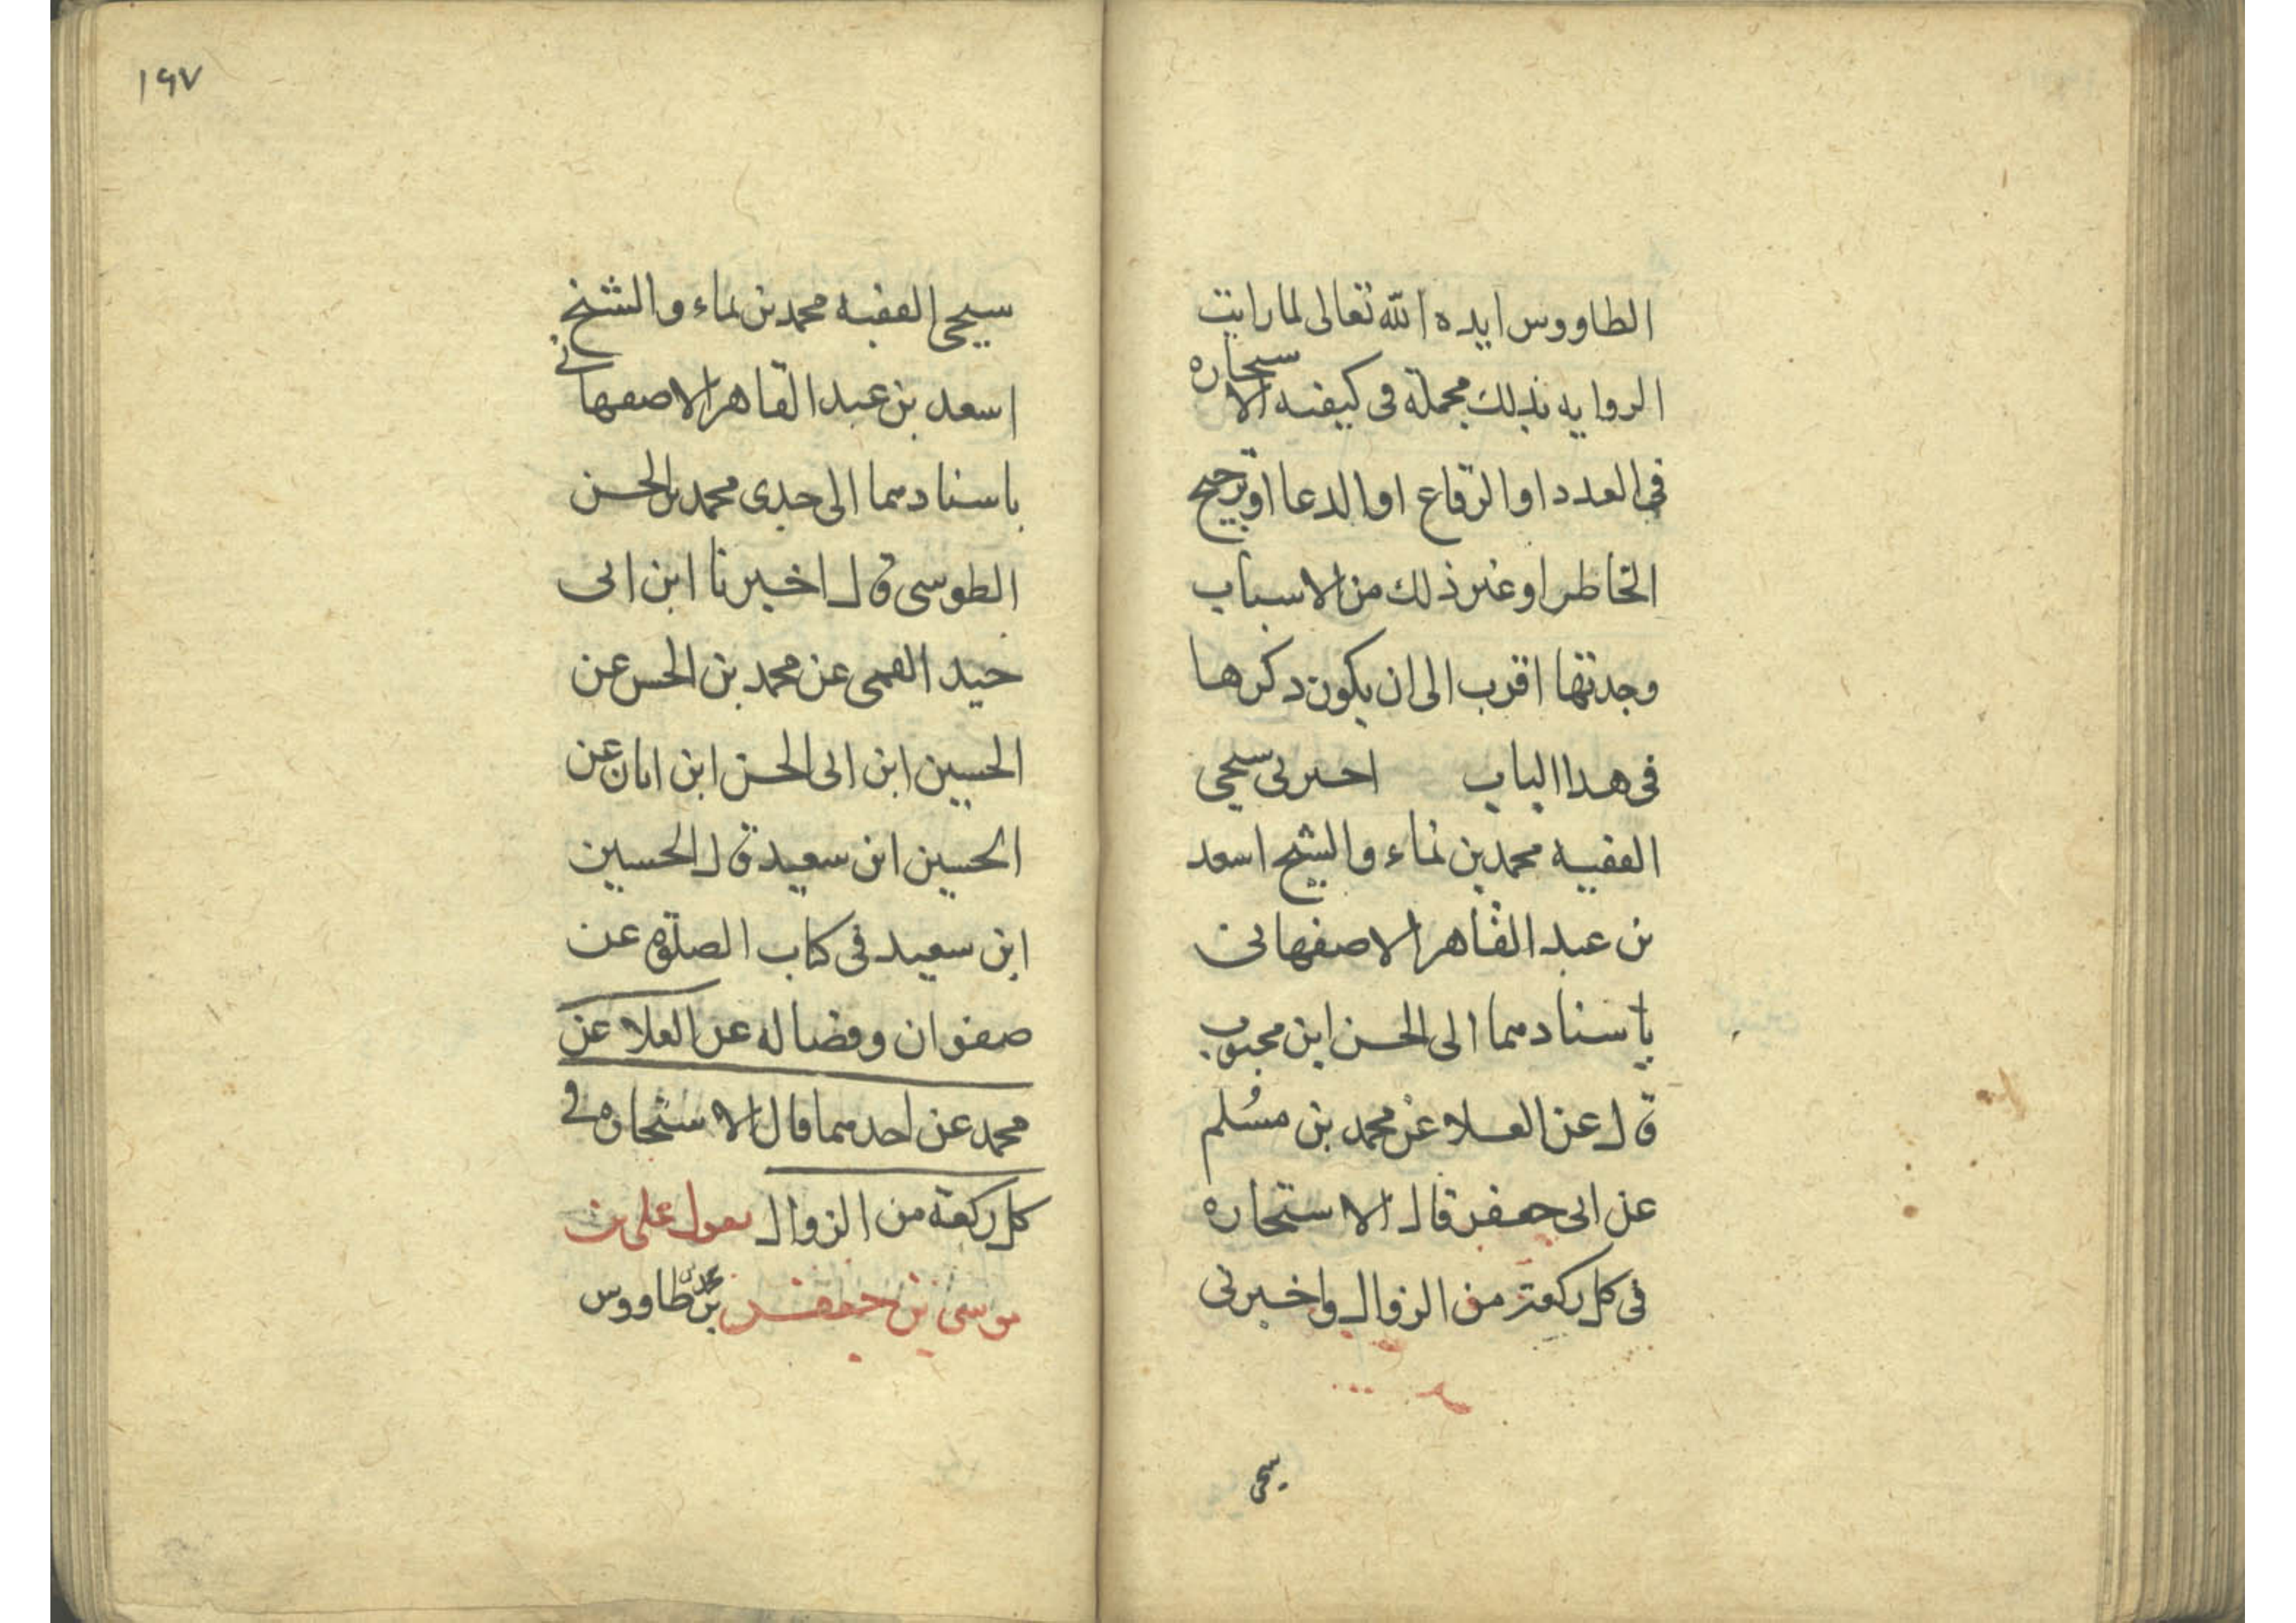 الطاووس ايده الله تعالى لما رايت
الروايه بذلك مجملة فى كيفيه الاستخاره
فى العدد او الرقاع او الدعا او ترجيح
الخاطر او غير ذلك من الاسباب
وجدتها اقرب الى ان يكون ذكرها
فى هذا الباب اخبرنى شيخى
الفقيه محمد بن نماء والشيخ اسعد
بن عبد القاهر الاصفهانى
باسنادهما الى الحسن ابن محبوب
قال عن العلا عن محمد بن مسلم
عن ابى جعفر قال الاستخاره
فى كل ركعة من الزوال واخبرنى
شيخى
١٩٧
شيخى الفقيه محمد بن نماء والشيخ
اسعد بن عبد القاهر الاصفهانى
باسنادهما الى جدى محمد بن الحسن
الطوسى قال اخبرنا ابن ابى
جيد القمى عن محمد بن الحسن عن
الحسين ابن ابى الحسن ابن ابان عن
الحسين ابن سعيد قال الحسين
ابن سعيد فى كتاب الصلوة عن
صفوان وفضاله عن العلا عن
محمد عن احدهما قال الاستخاره فى
كل ركعة من الزوال يقول على بن
موسى بن جعفر بن محمد بن طاووس